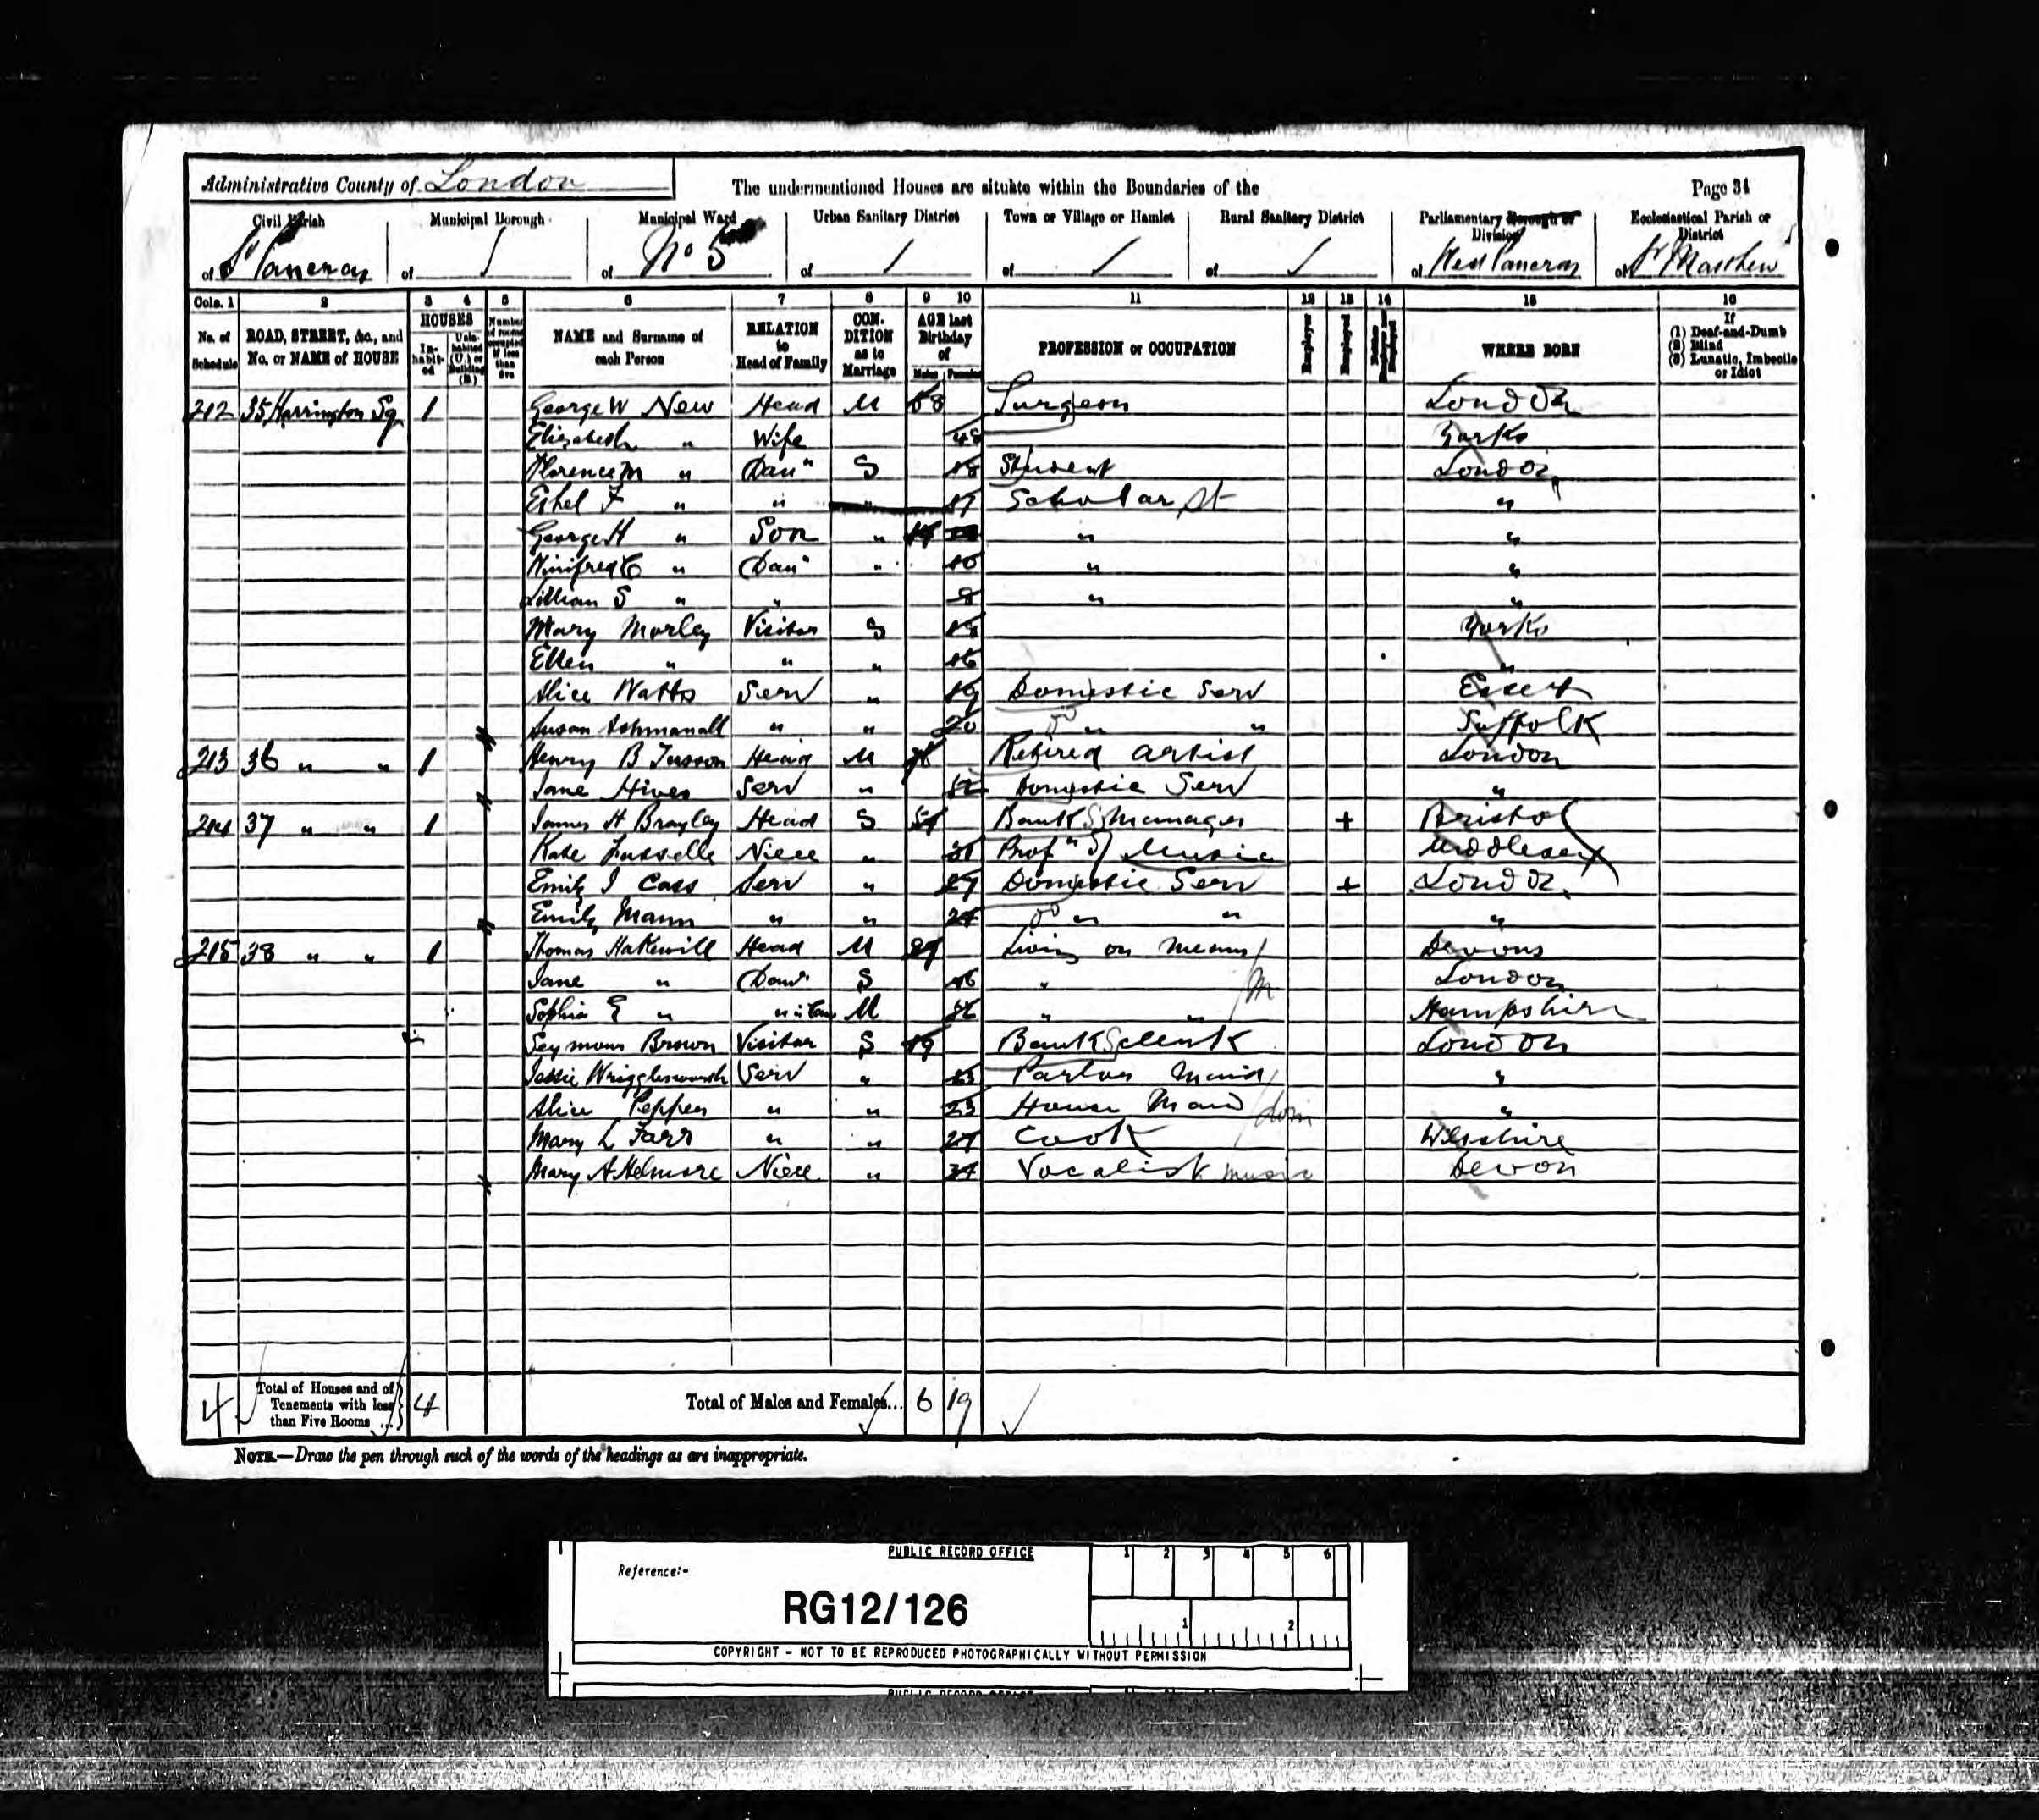 Administrative County of London
The undermentioned Houses are situate within the Boundaries of the
Page 34
Civil Parish
Municipal Borough
Municipal Ward
Urban Sanitary District
Town or Village or Hamlet
Rural Sanitary District
Parliamentary Borough or Division
Ecclesiastical Parish or District
of St Pancras of of No 5 of of of of West Pancras of St Matthew
Cols. 1 2 3 4 5 6 7 8 9 10 11 12 13 14 15 16
No. of Schedule
ROAD, STREET, &c., and No. or NAME of HOUSE
HOUSES
In-habit-ed
Unin-habited (U.) or Building (B.)
Number of rooms occupied if less than five
NAME and Surname of each Person
RELATION to Head of Family
CON-DITION as to Marriage
AGE last Birthday of
Males Females
PROFESSION or OCCUPATION
Employer
Employed
WHERE BORN
If
(1) Deaf-and-Dumb
(2) Blind
(3) Lunatic, Imbecile or Idiot
212 35 Harrington Sq 1 George W New Head M 58 Surgeon London
Elizabeth " Wife 48 Yorks
Florence M " Daur S 18 Student London
Ethel F " " " 17 Scholar St "
George H " Son " 14 " "
Winifred C " Daur " 10 " "
Lillian S " " 8 " "
Mary Morley Visitor S 18 Yorks
Ellen " " " 16 "
Alice Watts Serv " 19 Domestic Serv Essex
Susan " " 20 Do " " Suffolk
213 36 " " 1 Henry B Head M Retired artist London
Jane Hives Serv " Domestic Serv "
214 37 " " 1 James H Brayley Head S 51 Banks Manager + Bristol
Kate Niece " 31 Profr of Music Middlesex
Emily J Cass Serv " 27 Domestic Serv + London
Emily Mann " " 24 Do " " "
215 38 " " 1 Thomas Hakewill Head M 87 Living on means Devons
Jane " Daur S 46 " London
Sophia E " " in Law M 36 " " Hampshire
Seymour Brown Visitor S 19 Banks clerk London
Jessie Wrigglesworth Serv " 23 Parlor Maid "
Alice Pepper " " 23 House Maid dom "
Mary L Farr " " 27 Cook Wilshire
Mary A Helmore Niece " 34 Vocalist music Devon
4 Total of Houses and of Tenements with less than Five Rooms ... 4
Total of Males and Females... 6 19
NOTE.—Draw the pen through such of the words of the headings as are inappropriate.
PUBLIC RECORD OFFICE
1 2 3 4 5 6
Reference:-
RG12/126
1 2
COPYRIGHT - NOT TO BE REPRODUCED PHOTOGRAPHICALLY WITHOUT PERMISSION